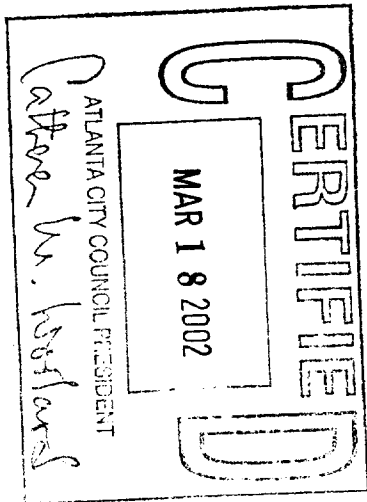 CERTIFIED
MAR 18 2002
ATLANTA CITY COUNCIL PRESIDENT
Cathy M. Woolard